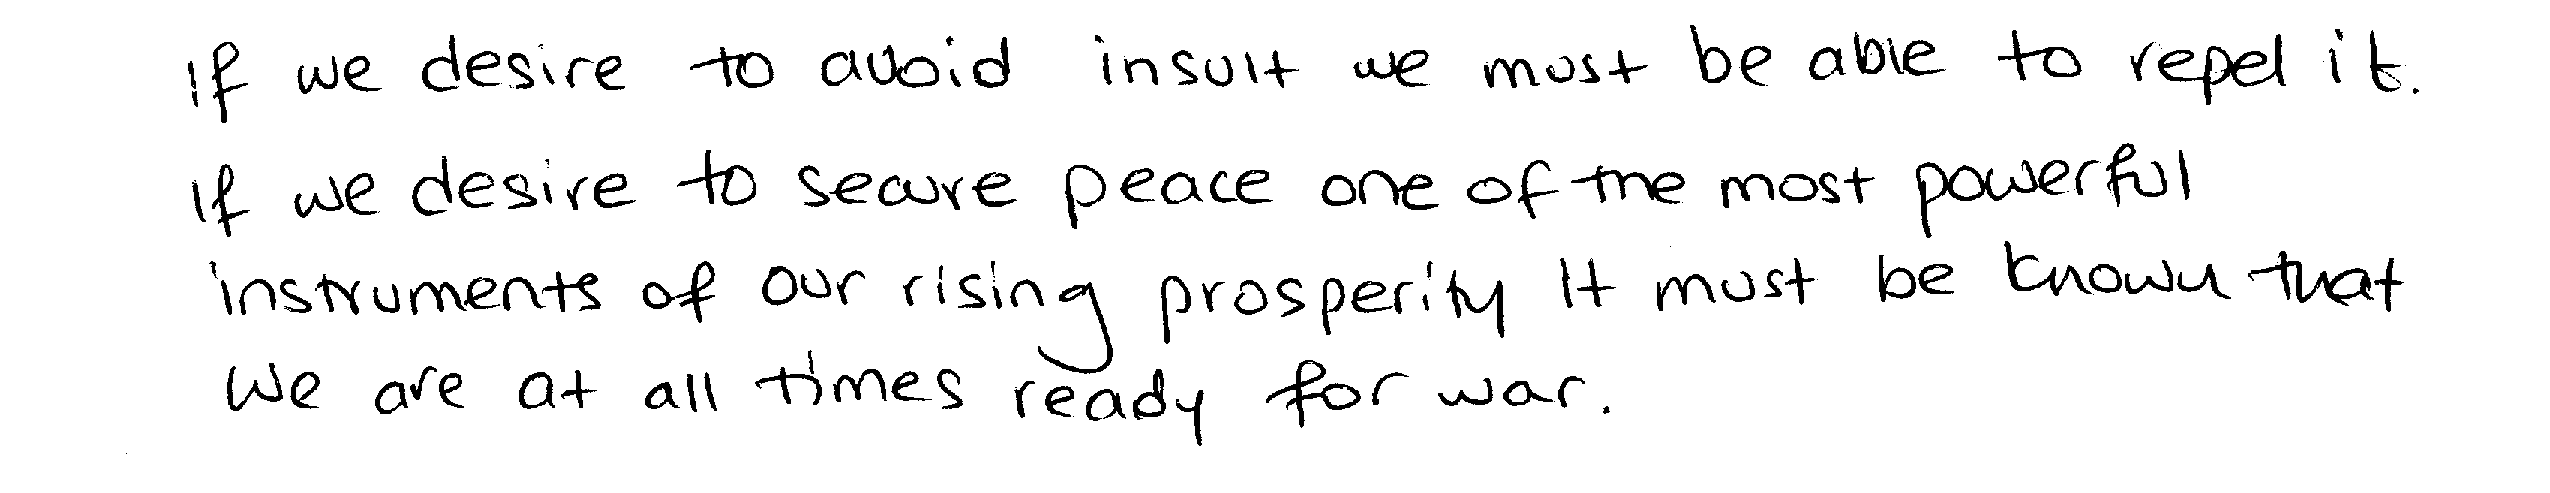 If we desire to avoid insult we must be able to repel it.
If we desire to secure peace one of the most powerful
instruments of our rising prosperity It must be known that
we are at all times ready for war.